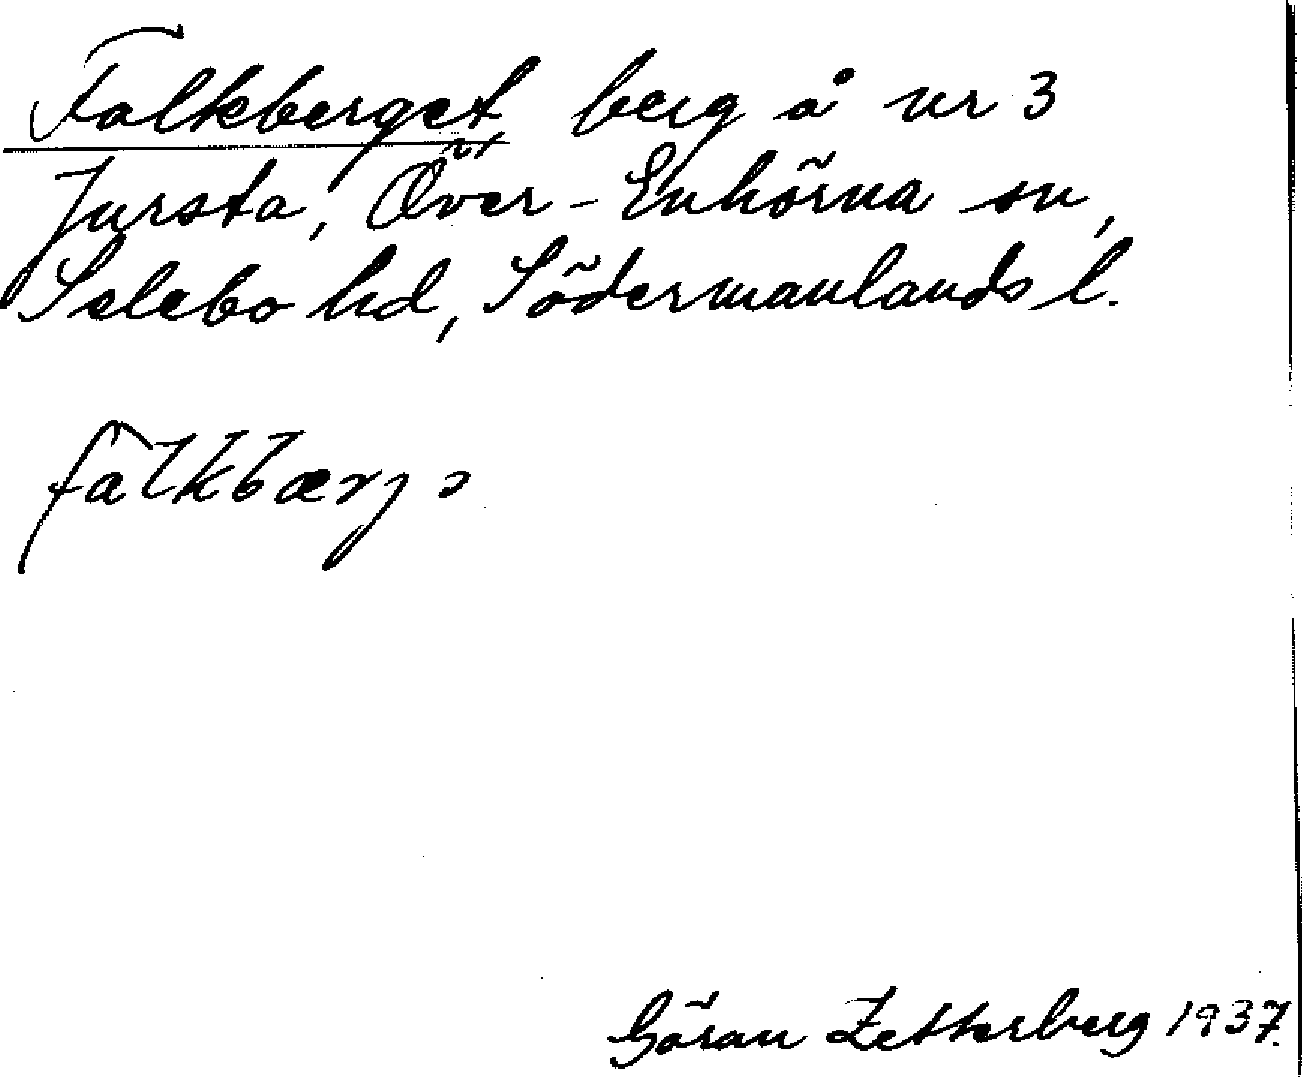 Falkberget, berg å nr 3
Jursta, Över-Enhörna sn,
Selebo hd, Södermanlands l.
fàlkbærjə
Göran Zetterberg 1937.